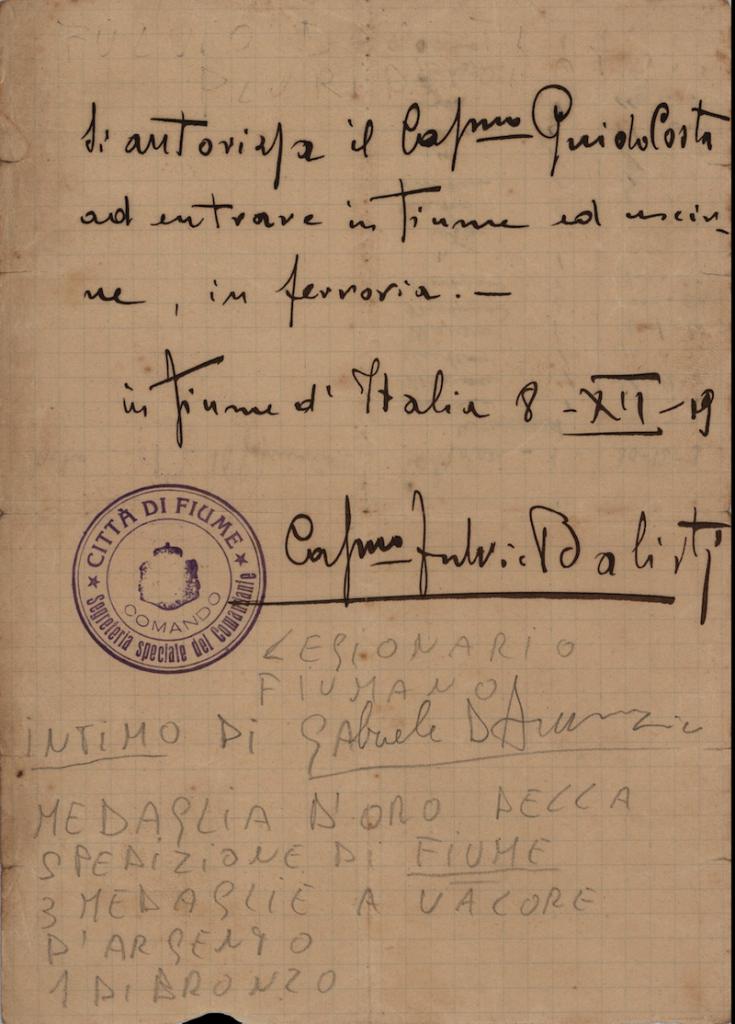 Si autorizza il Cap.no Guido Costa
ad entrare in Fiume ed uscir-
ne, in ferrovia. —
in Fiume d' Italia 8 - XII - 19
Cap.no Fulvio Balisti
★ CITTÀ DI FIUME ★
COMANDO
Segreteria speciale del Comandante
LEGIONARIO
FIUMANO
INTIMO DI Gabriele D'Annunzio
MEDAGLIA D'ORO DELLA
SPEDIZIONE DI FIUME
3 MEDAGLIE A VALORE
D'ARGENTO
1 DI BRONZO